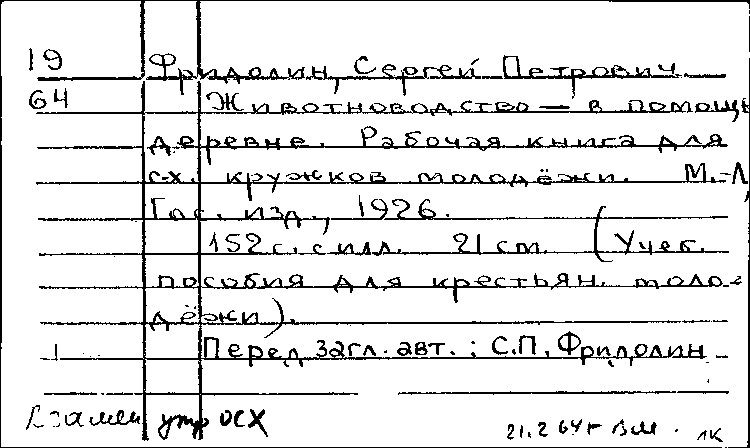 19 Фридолин, Сергей Петрович.
64 Животноводство — в помощь
деревне. Рабочая книга для
с-х. кружков молодёжи. М.-Л,
Гос. изд., 1926.
152 с. с илл. 21 см. (Учеб.
пособия для крестьян. моло-
дёжи).
1 Перед загл. авт.: С.П. Фридолин
Взамен утр ОСХ
21.2 64 г 1К